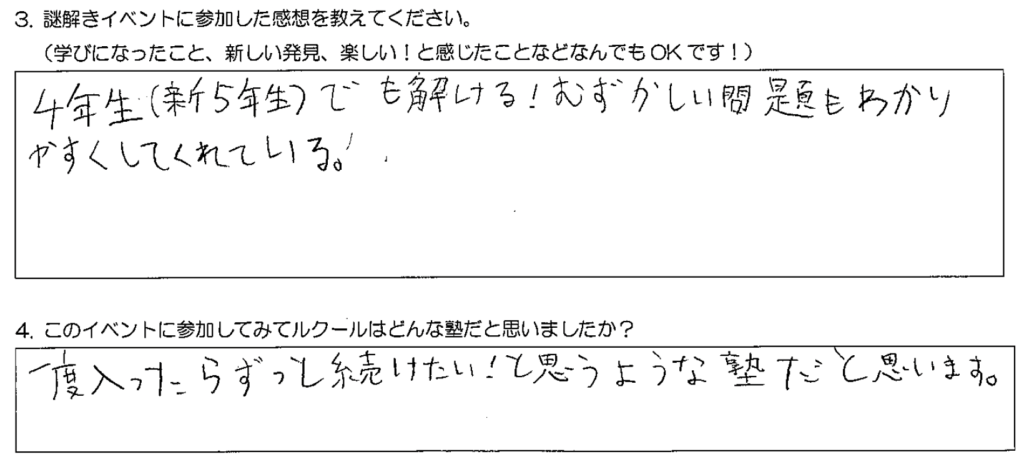 3. 謎解きイベントに参加した感想を教えてください。
（学びになったこと、新しい発見、楽しい！と感じたことなどなんでもOKです！）
4年生(新5年生)でも解ける！むずかしい問題もわかり
やすくしてくれている。
4. このイベントに参加してみてルクールはどんな塾だと思いましたか？
一度入ったらずっと続けたい！と思うような塾だと思います。